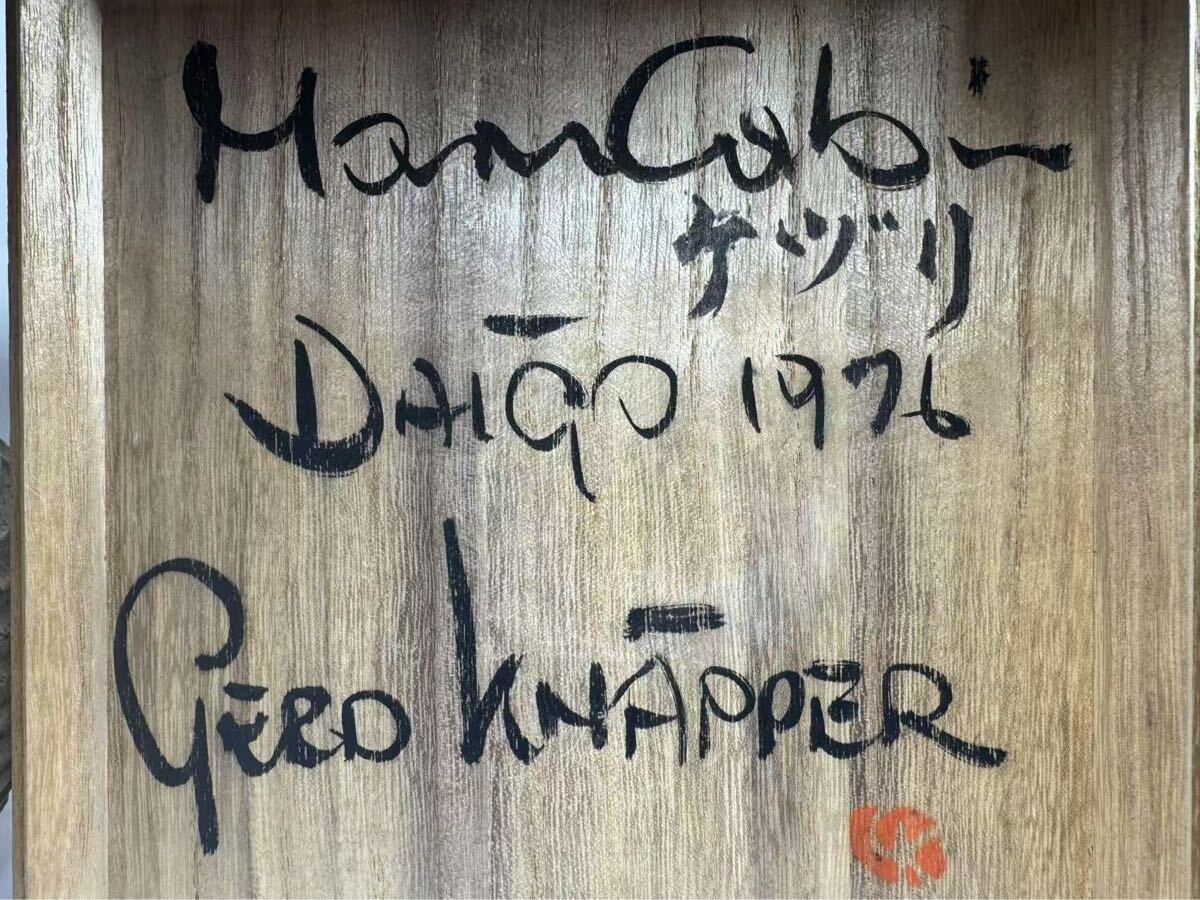 MamCobi
ケヅリ
DAIGO 1976
GERD KNÄPPER